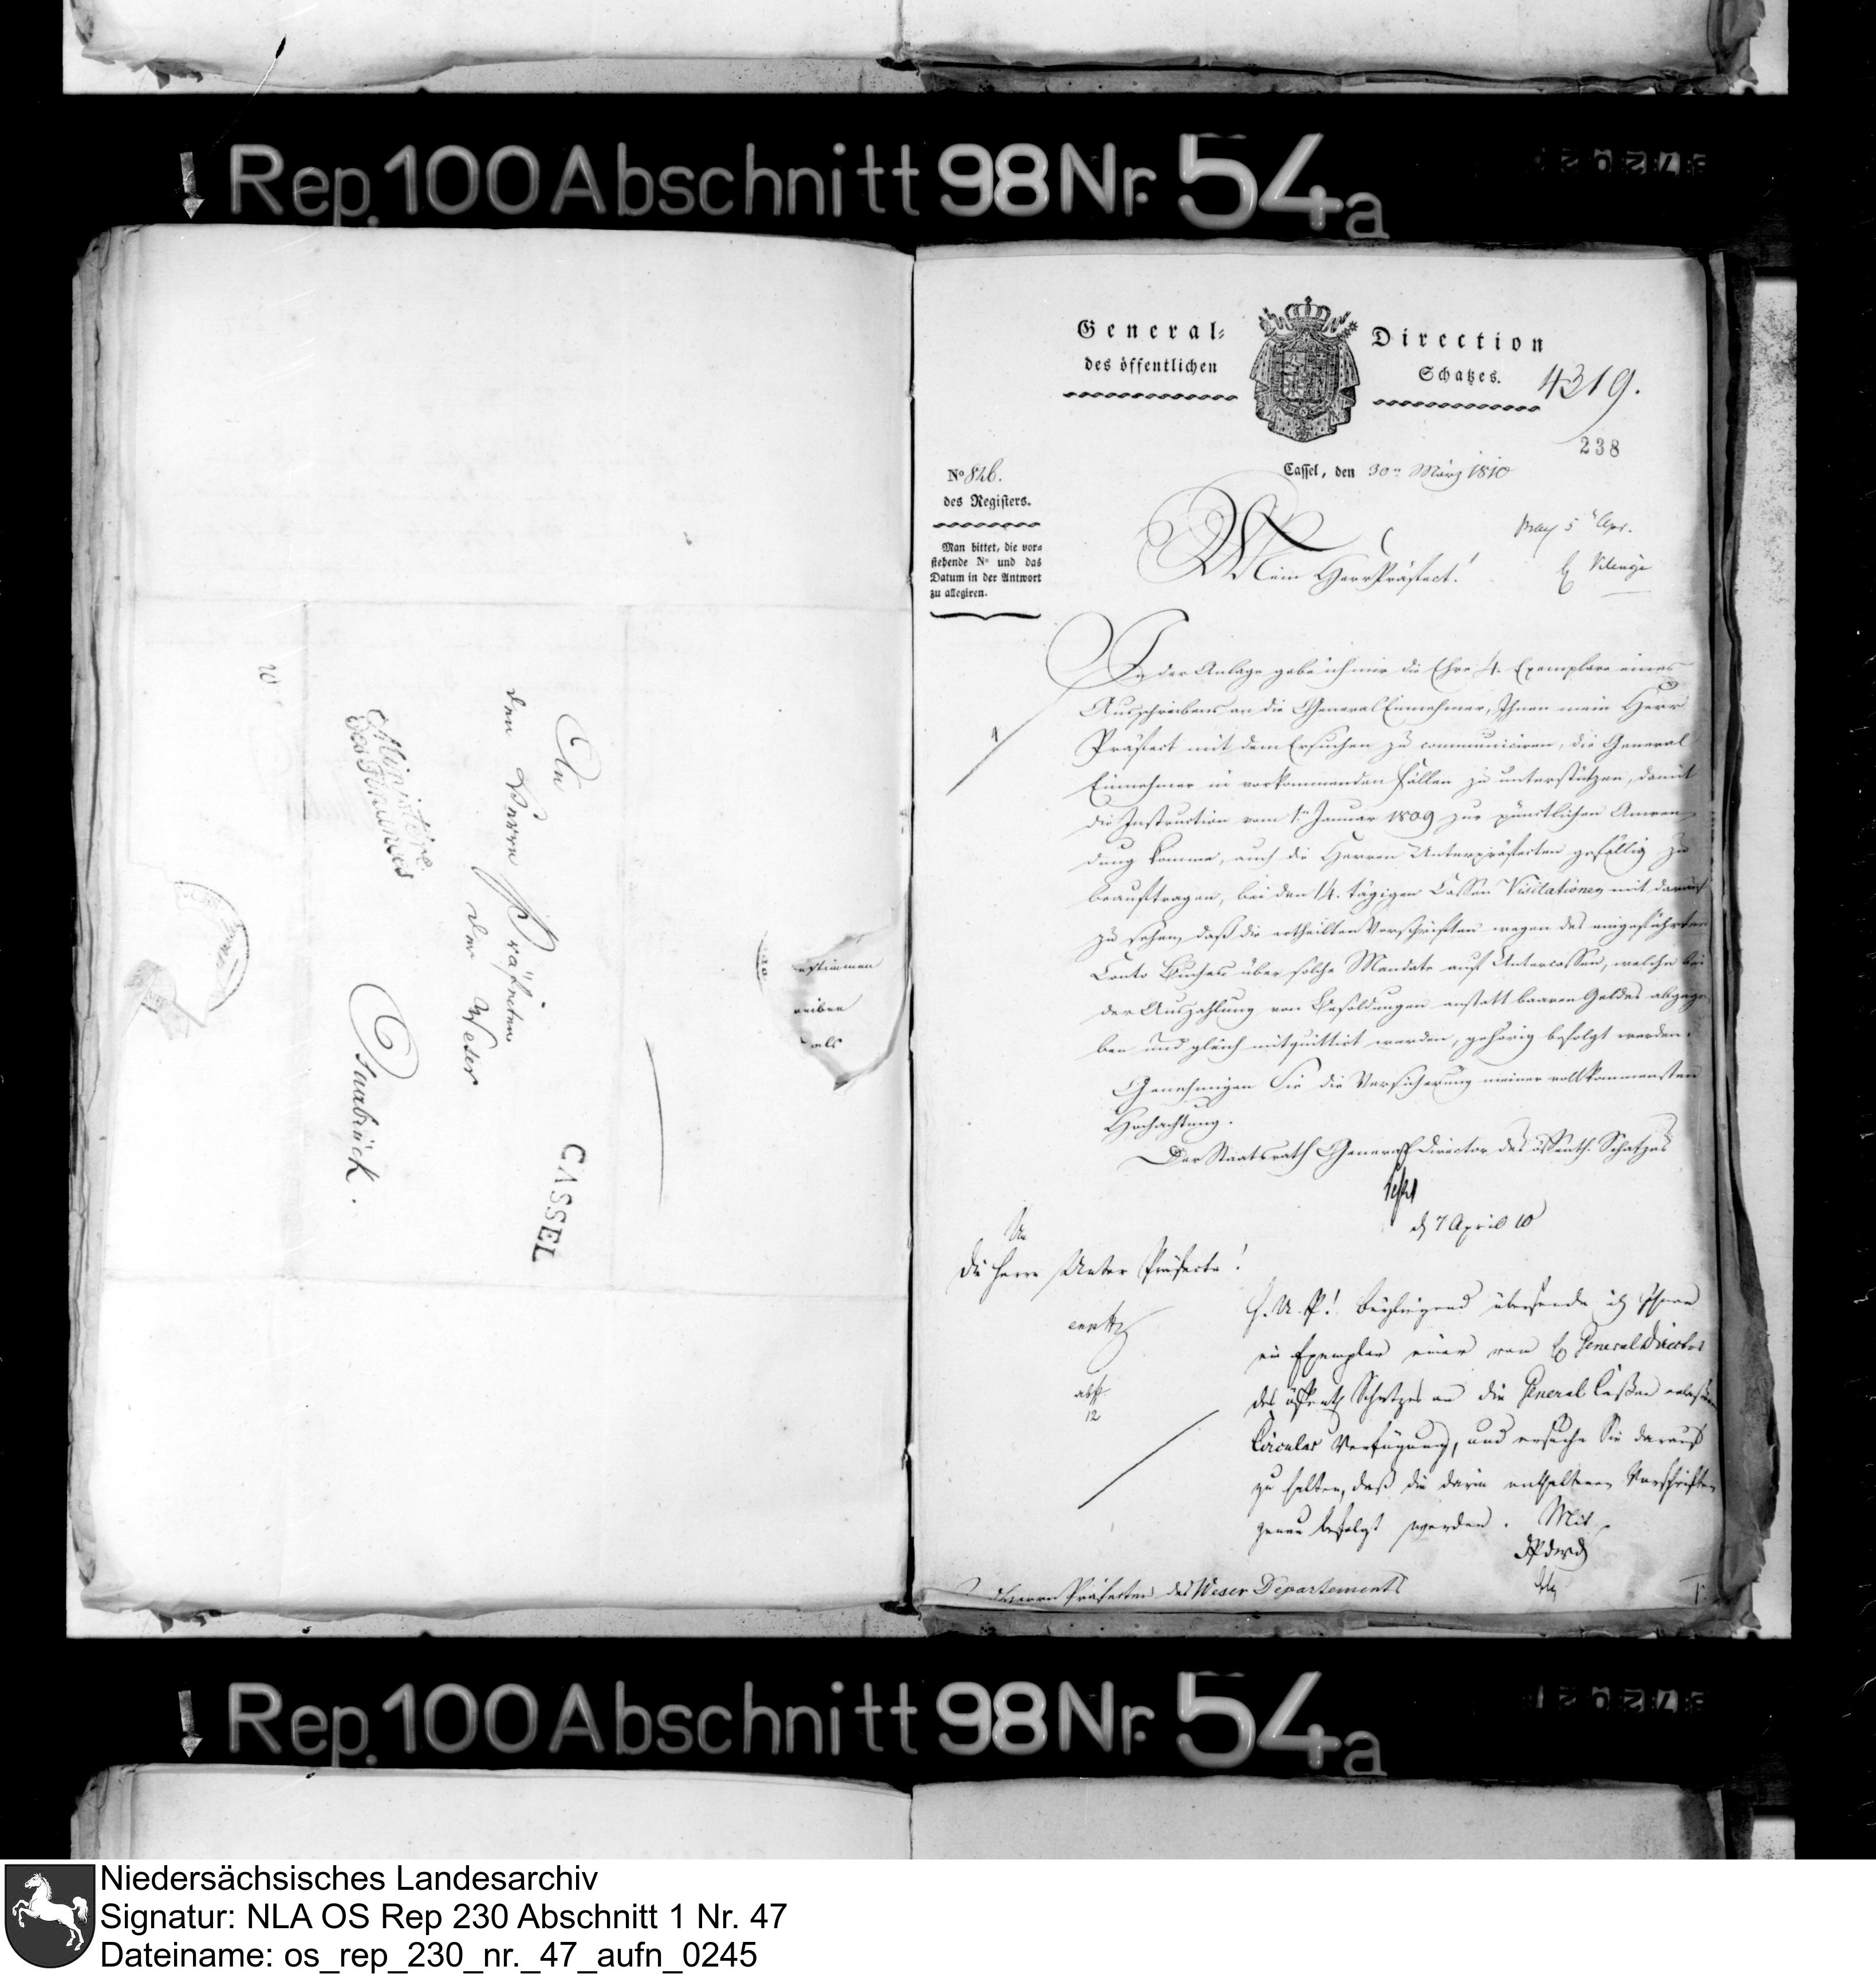 Rep. 100 Abschnitt 98 Nr. 54a
An
den Herrn Präfecten
der Weser
Osnabrück.
Ministère
des Finances
CASSEL
estimmen
reiben
als
General-Direction
des öffentlichen Schatzes.
4319.
238
No 826.
des Registers.
Man bittet, die vor-
stehende No und das
Datum in der Antwort
zu allegiren.
Cassel, den 30n März 1810
5n Apr.
Mein Herr Präfect!
In der Anlage gebe ich mir die Ehre 4. Exemplare eines
Ausschreibens an die General Einnehmer, Ihnen mein Herr
Präfect mit dem Ersuchen zu communiciren, die General
Einnehmer in vorkommenden Fällen zu unterstützen, damit
die Instruction vom 1n Januar 1809 zur pünctlichen Anwen-
dung komme, auch die Herren Unterpräfecten gefällig zu
beauftragen, bei den 14. tägigen Cassen Visitationen mit darauf
zu sehen, daß die ertheilten Vorschriften wegen des eingeführten
Conto Buches über solche Mandate auf Untercassen, welche bei
der Auszahlung von Besoldungen anstatt baaren Geldes abgege-
ben und gleich mitquittirt werden, gehörig befolgt werden.
Genehmigen Sie die Versicherung meiner vollkommensten
Hochachtung.
Der Staatsrath General Director des öffentl. Schatzes
d 7 April 10
An
die Herrn Unter Präfecte!
H. U. P.! Beyliegend übersende ich Ihnen
ein Exemplar einer von H General Director
des öffentl Schatzes an die General Cassen erlaßenen
Circular Verfügung, und ersuche Sie darauf
zu halten, daß die darin enthaltenen Vorschriften
genau befolgt werden. Mit
12
Herrn Präfecten des Weser Departements
Rep. 100 Abschnitt 98 Nr. 54a
Niedersächsisches Landesarchiv
Signatur: NLA OS Rep 230 Abschnitt 1 Nr. 47
Dateiname: os_rep_230_nr._47_aufn_0245